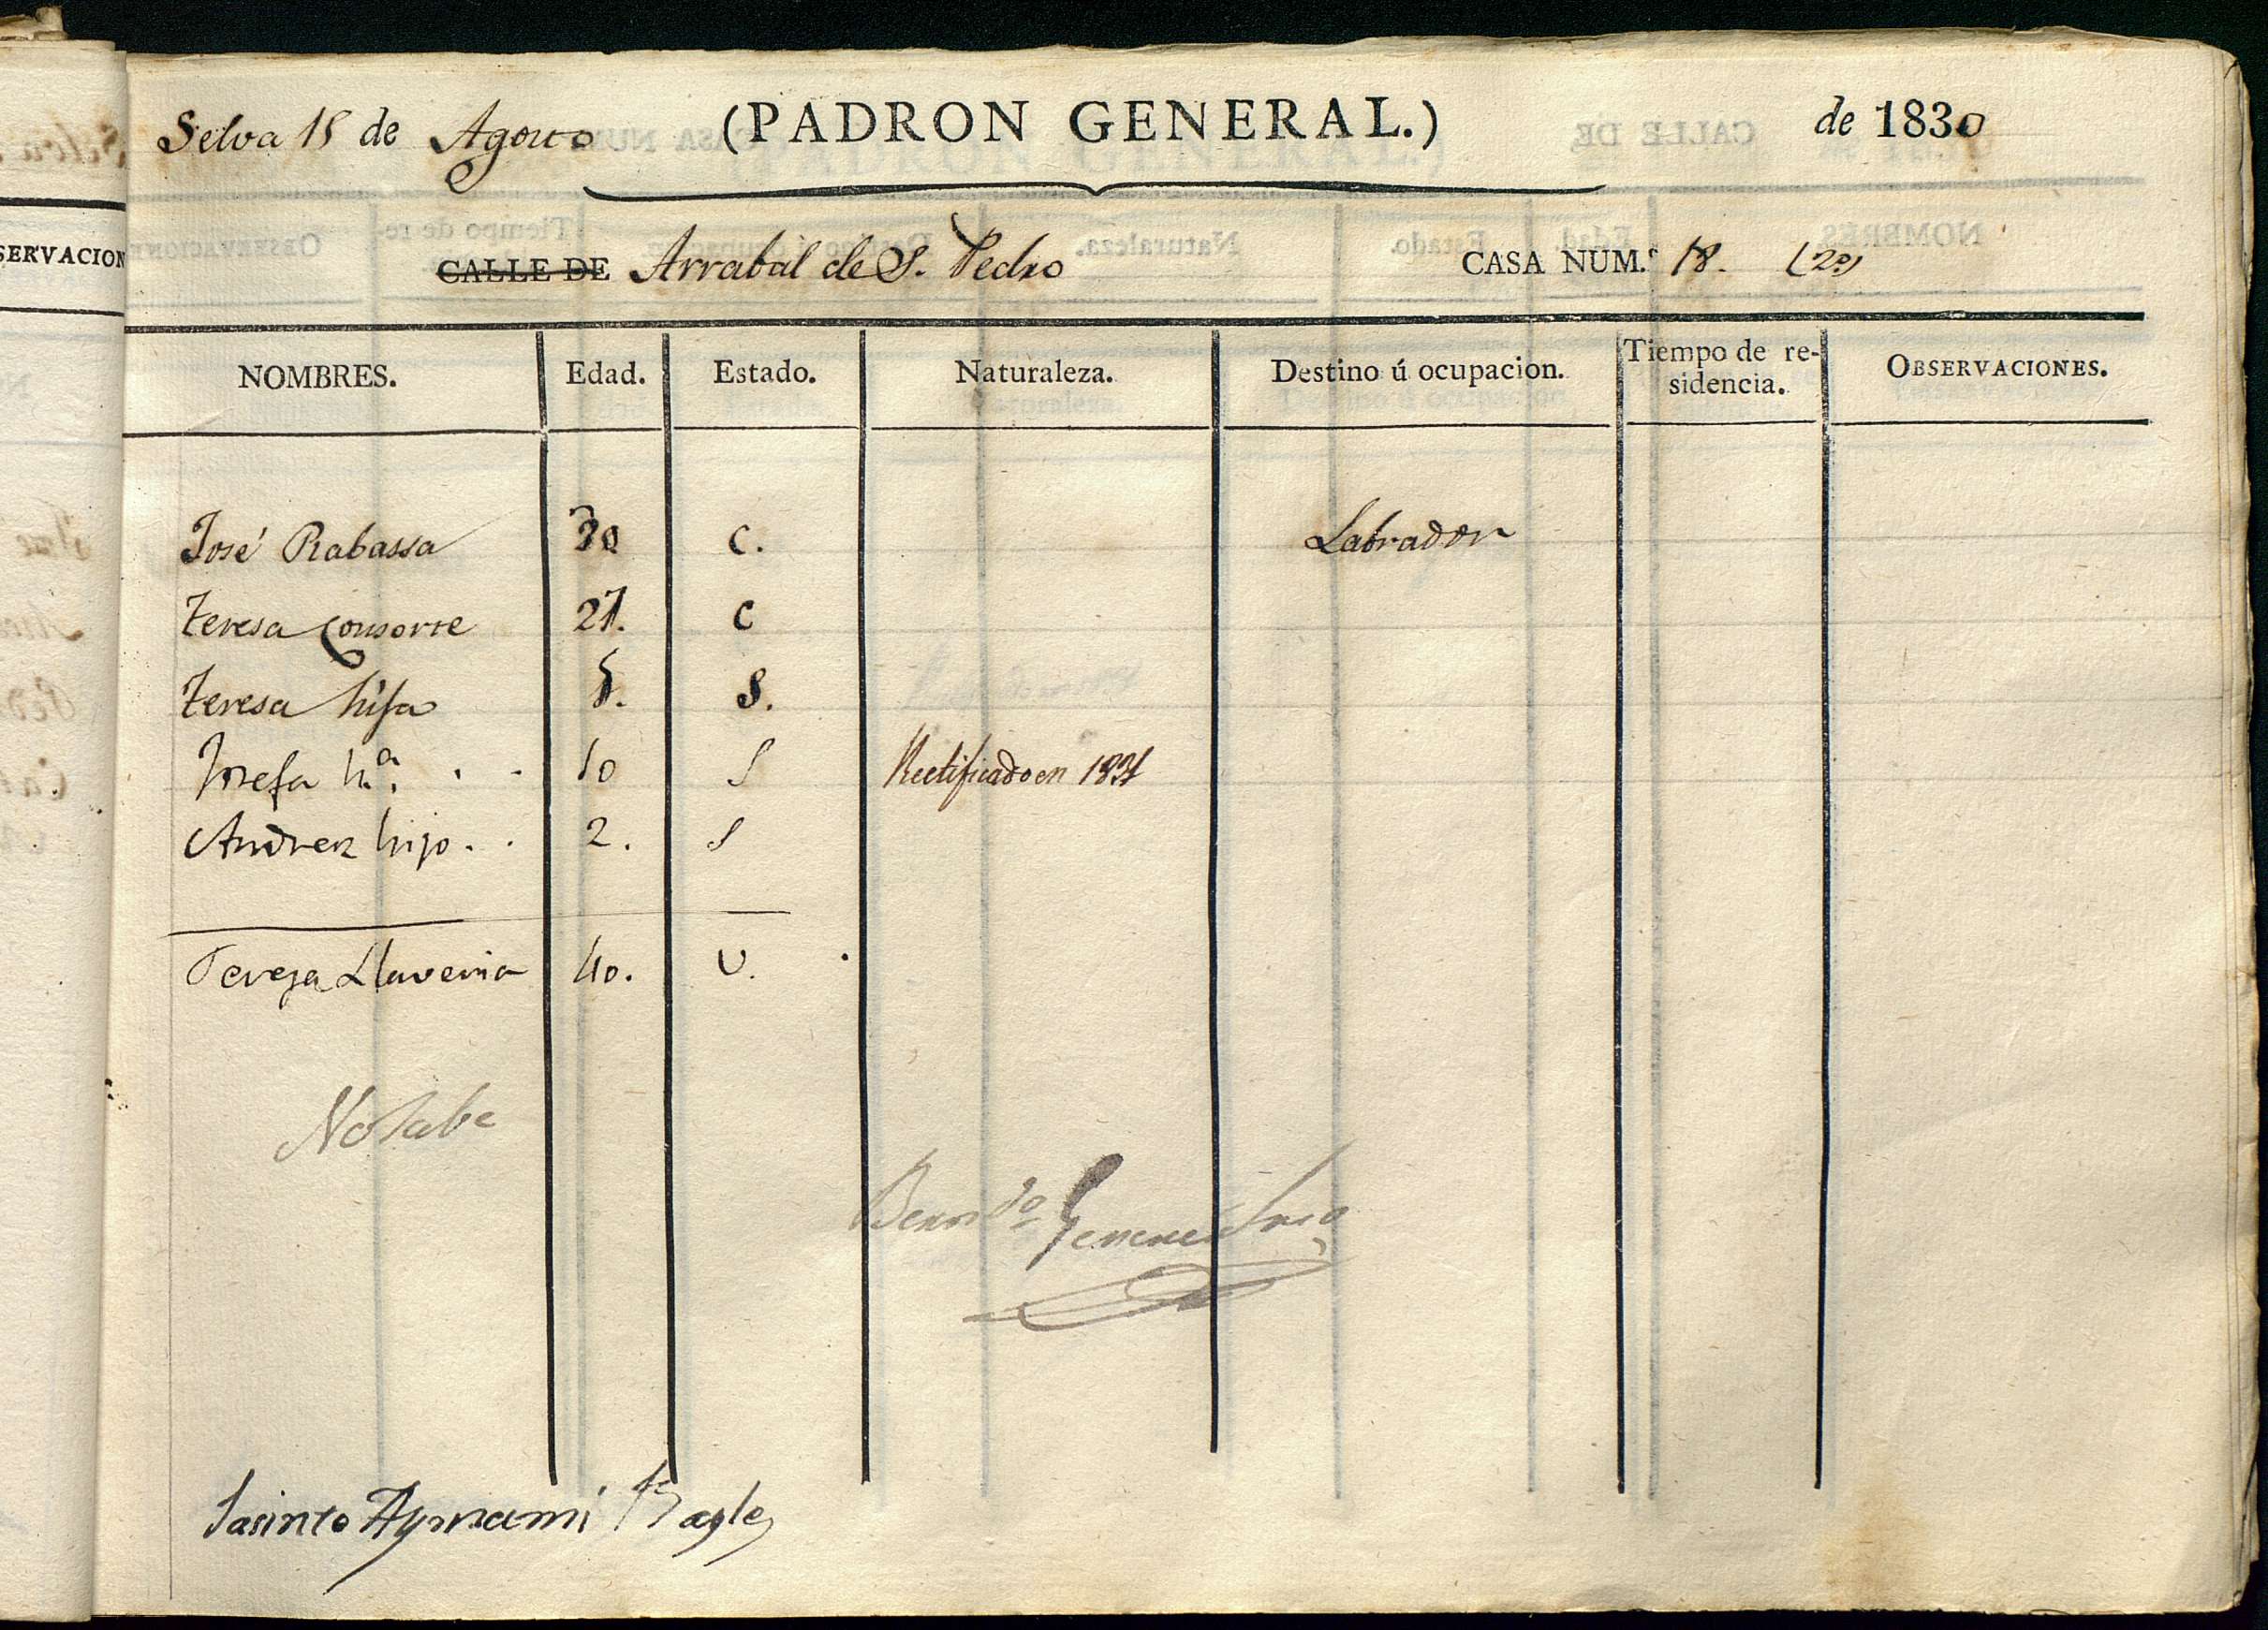 Selva 18 de Agosto (PADRON GENERAL.) de 1830
CALLE DE Arrabal de S. Pedro CASA NUM.º 18. (2º)
NOMBRES. Edad. Estado. Naturaleza. Destino ú ocupacion. Tiempo de re-
sidencia. OBSERVACIONES.
José Rabassa 30 C. Labrador
Teresa Consorte 27. C
Teresa hija 5. S.
Josefa h.ª 10 S Rectificado en 1831
Andrez hijo. 2. S
Teresa Llaveria 40. V.
No sabe
Bern.do Generés Srio
Jasinto Aymami Bagle
SERVACION